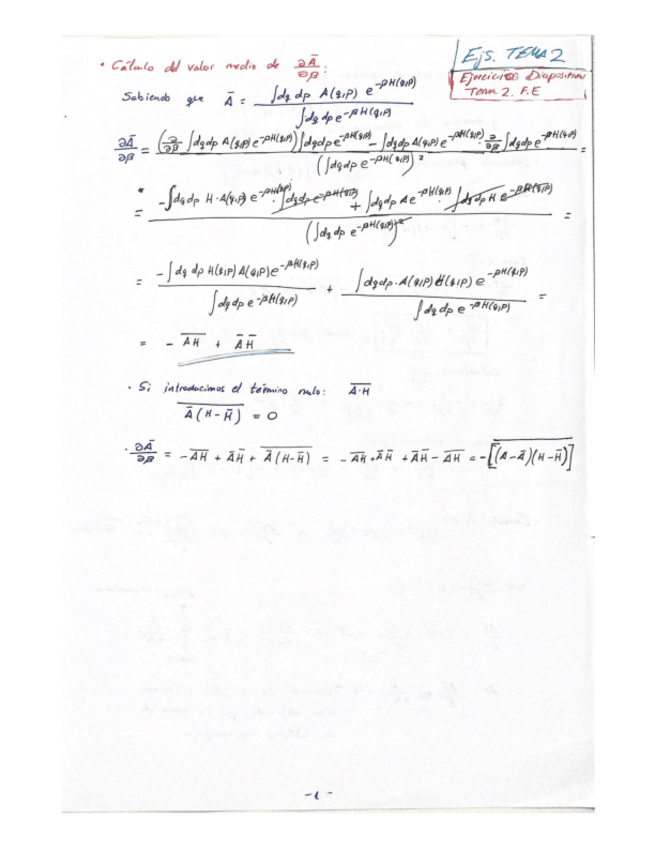 Ejs. TEMA 2
Ejercicios Diapositivas
Tema 2. F.E
• Cálculo del valor medio de ∂Ā/∂β:
Sabiendo que Ā = ∫dq dp A(q,p) e^{-βH(q,p)} / ∫dq dp e^{-βH(q,p)}
∂Ā/∂β = [(∂/∂β ∫dq dp A(q,p) e^{-βH(q,p)}) ∫dq dp e^{-βH(q,p)} - ∫dq dp A(q,p) e^{-βH(q,p)} ∂/∂β ∫dq dp e^{-βH(q,p)}] / (∫dq dp e^{-βH(q,p)})² =
= [-∫dq dp H·A(q,p) e^{-βH(q,p)} · ∫dq dp e^{-βH(q,p)} + ∫dq dp A e^{-βH(q,p)} · ∫dq dp H e^{-βH(q,p)}] / (∫dq dp e^{-βH(q,p)})² =
= -∫dq dp H(q,p) A(q,p) e^{-βH(q,p)} / ∫dq dp e^{-βH(q,p)} + ∫dq dp · A(q,p) H(q,p) e^{-βH(q,p)} / ∫dq dp e^{-βH(q,p)} =
= - \overline{AH} + Ā H̄
· Si introducimos el término nulo: \overline{A·H}
\overline{Ā(H-H̄)} = 0
· ∂Ā/∂β = -\overline{AH} + ĀH̄ + \overline{Ā(H-H̄)} = -\overline{AH} + ĀH̄ + ĀH̄ - \overline{AH} = -[\overline{(A-Ā)(H-H̄)}]
-1-